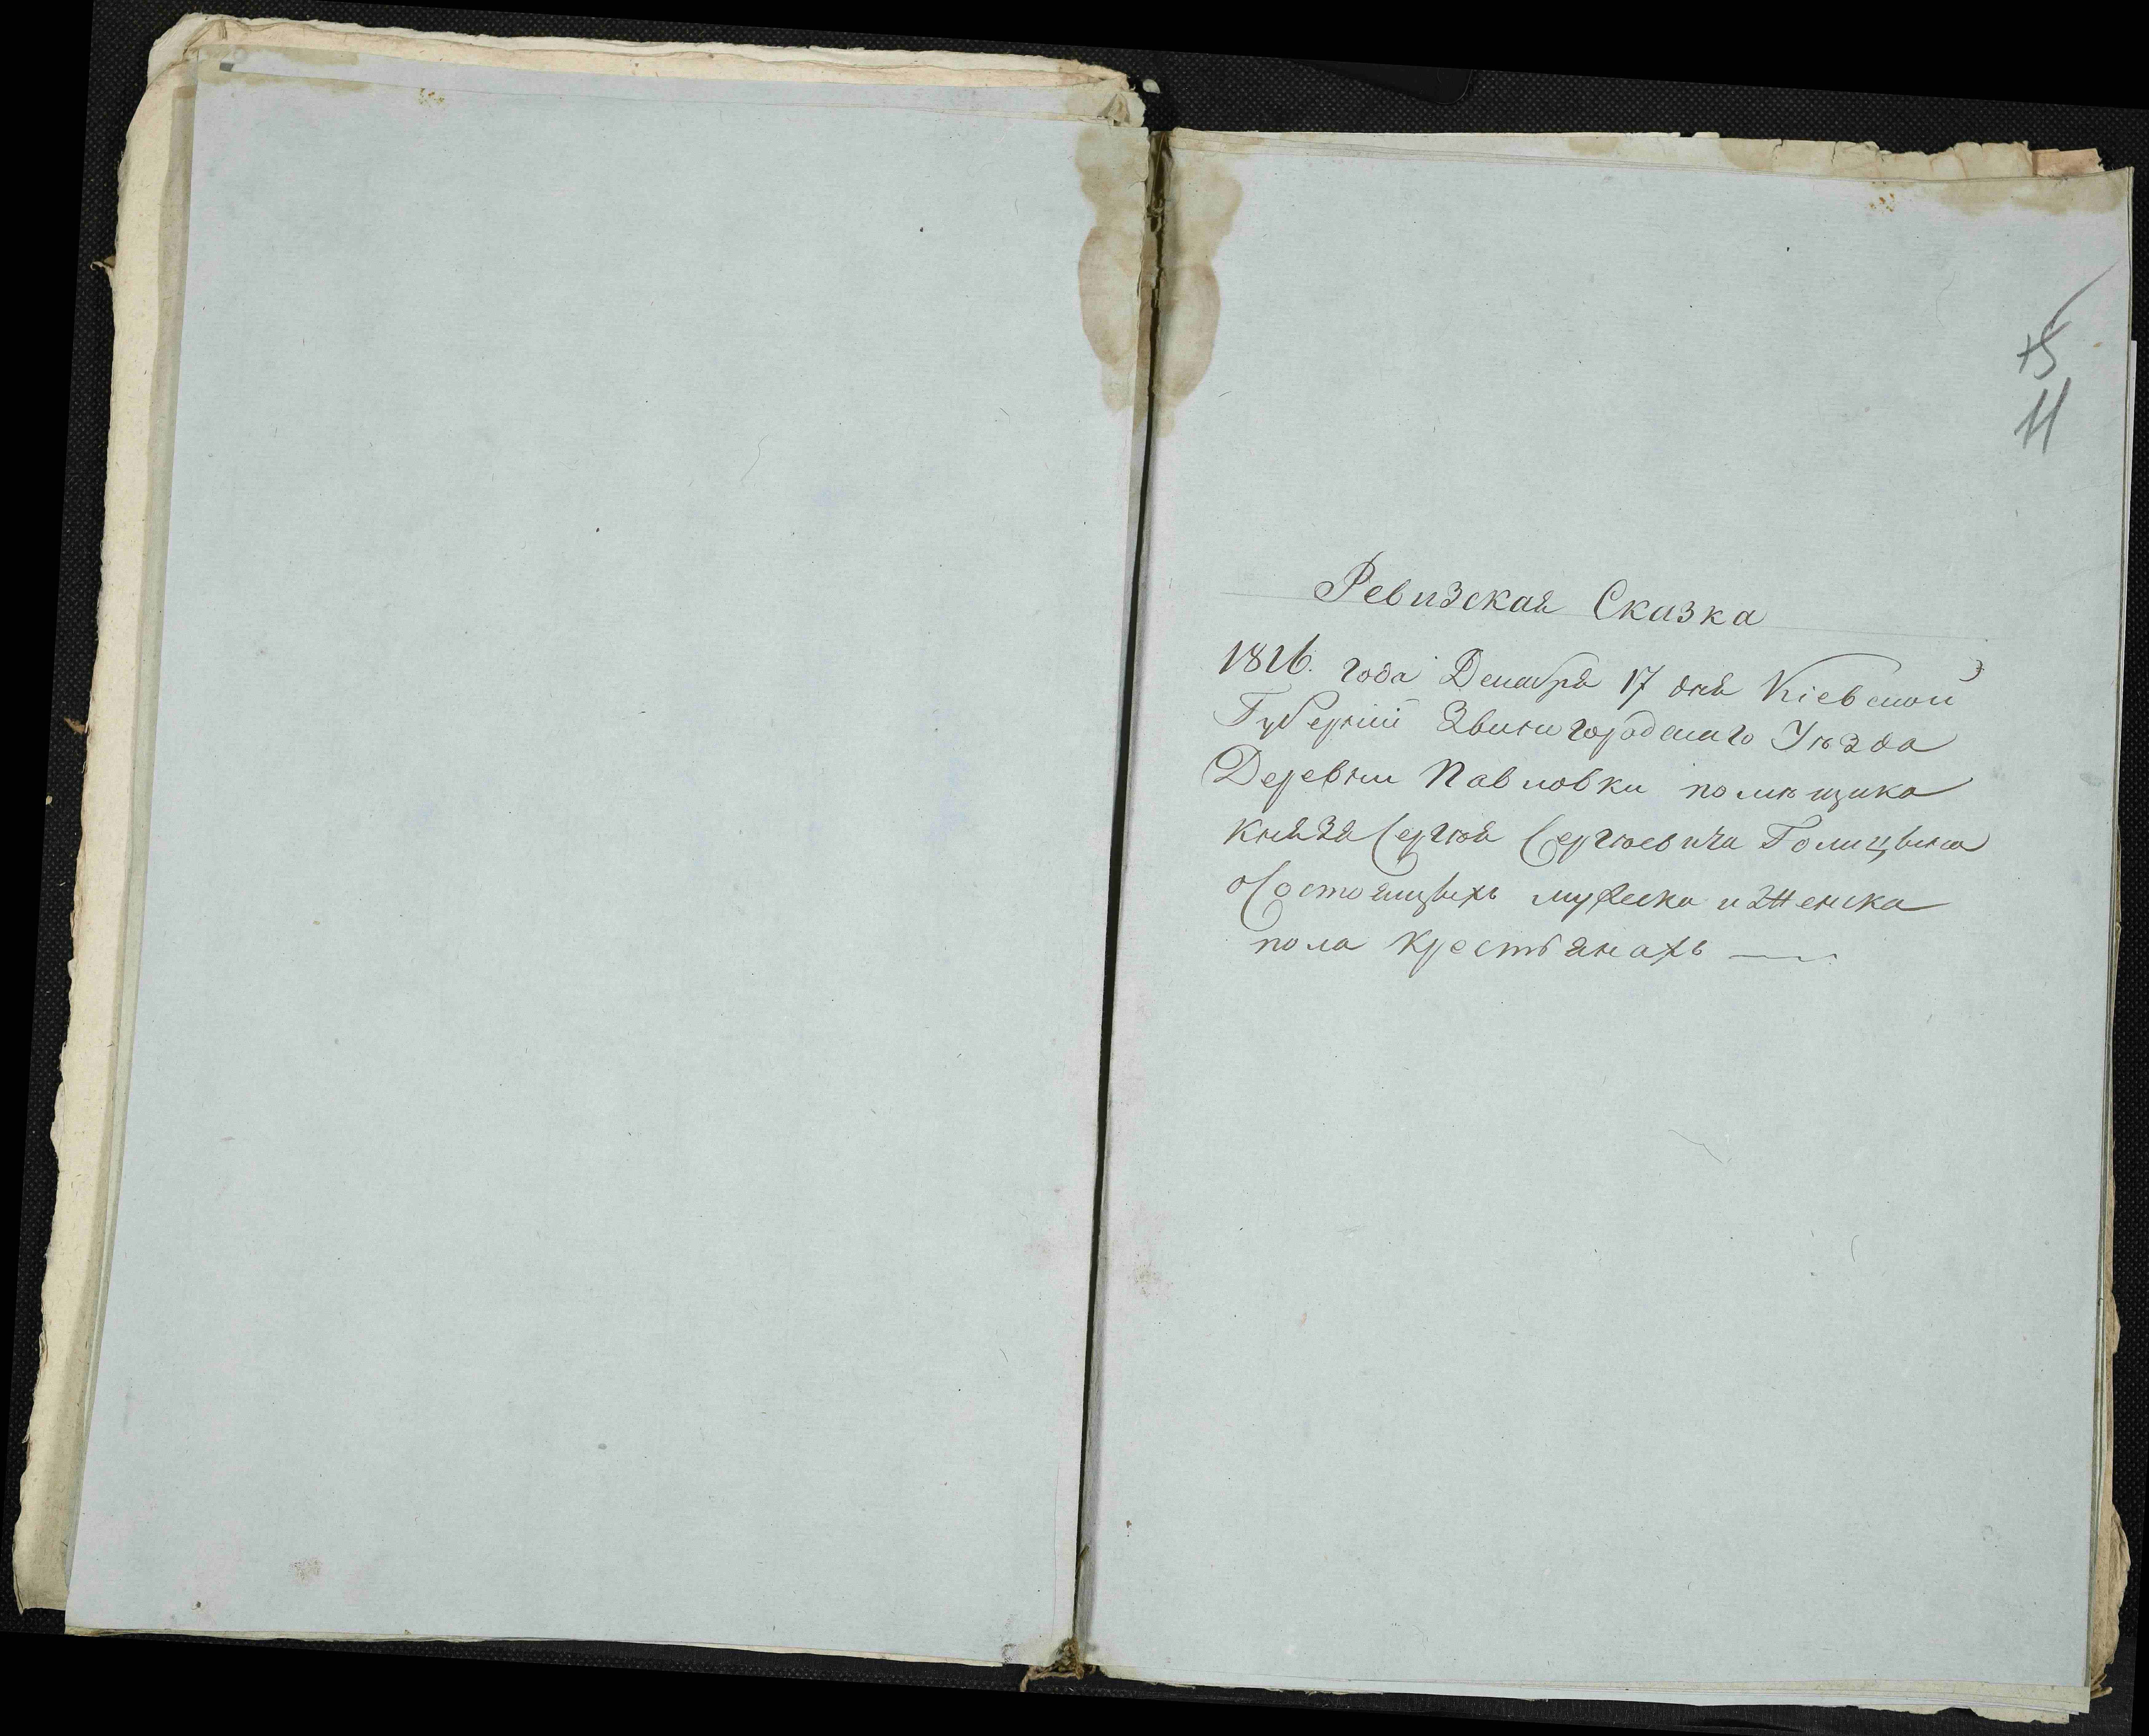 15
11
Ревизская Сказка
1816. года Декабря 17 дня Кіевской
Губерніи Звенигородскаго Уѣзда
Деревни Павловки помѣщика
князя Сергѣя Сергѣевича Голицына
о Состоящихъ мужеска и Женска
пола крестьянахъ